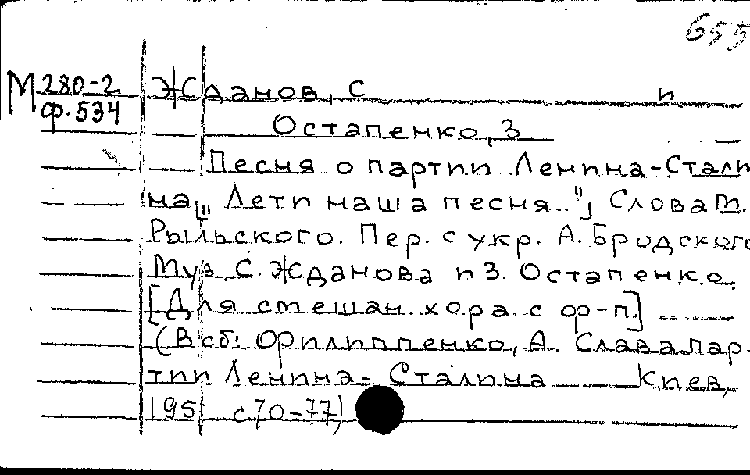 655
М 280-2 Жданов, С и
ф.534
Остапенко, З
Песня о партии Ленина-Стали
на [„Лети наша песня.."] Слова М.
Рыльского. Пер. с укр. А. Бродского
Муз С. Жданова и З. Остапенко.
[Для смешан. хора с ф-п]
(В сб: Филиппенко, А. Слава пар-
тии Ленина-Сталина Киев,
195 с 70-77)